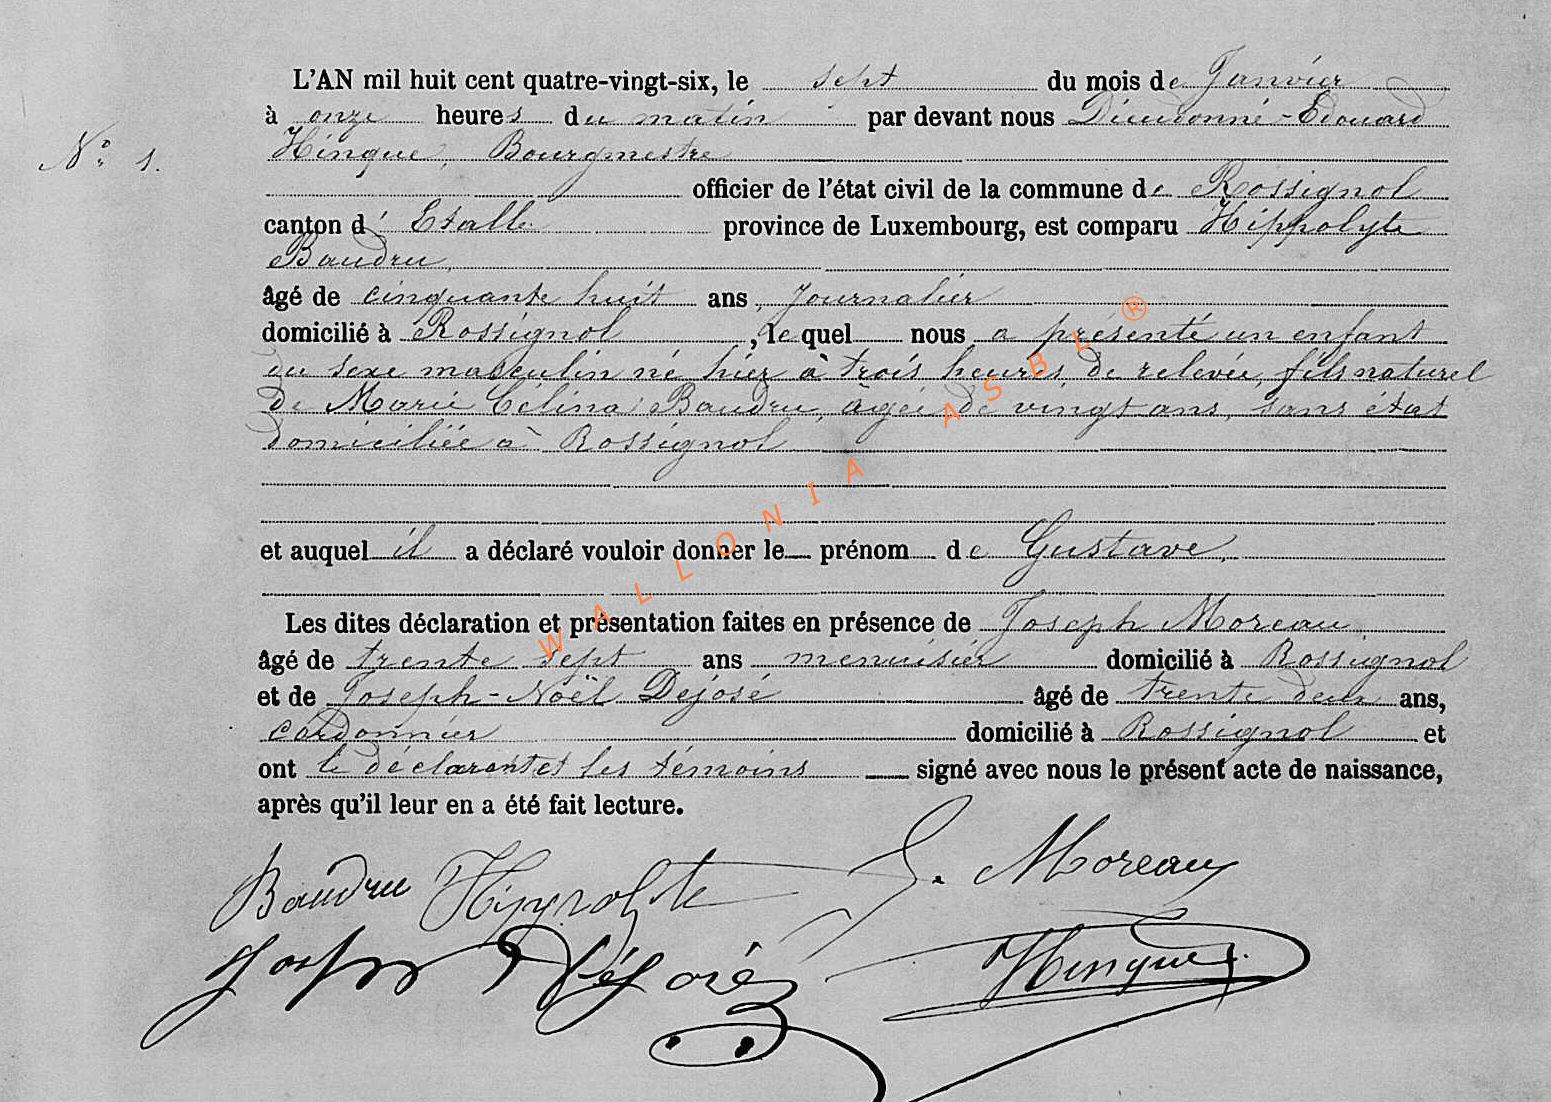 L'AN mil huit cent quatre-vingt-six, le sept du mois de Janvier
à onze heures du matin par devant nous Dieudonné-Edouard
N° 1.
Hinque, Bourgmestre
officier de l'état civil de la commune de Rossignol
canton d' Etalle province de Luxembourg, est comparu Hippolyte
Baudru,
âgé de cinquante huit ans, Journalier
domicilié à Rossignol, lequel nous a présenté un enfant
du sexe masculin né hier à trois heures de relevée, fils naturel
de Marie Célina Baudru, âgée de vingt ans, sans état
domiciliée à Rossignol
et auquel il a déclaré vouloir donner le prénom de Gustave.
Les dites déclaration et présentation faites en présence de Joseph Moreau
âgé de trente sept ans menuisier domicilié à Rossignol
et de Joseph-Noël Dejosé âgé de trente deux ans,
cordonnier domicilié à Rossignol et
ont le déclarant et les témoins signé avec nous le présent acte de naissance,
après qu'il leur en a été fait lecture.
Baudru Hippolyte J. Moreau
Joseph Déjosé Hinque
WALLONIA ASBL ®